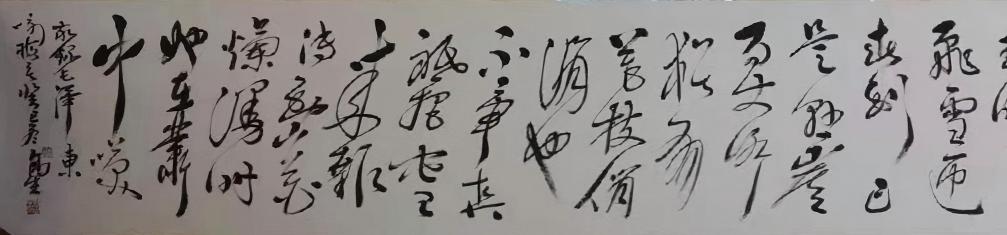 飛雪迎
春到已
是懸崖
百丈冰
猶有
花枝俏
俏也
不争春
祇把春
来報
待到山花
爛漫时
她在叢
中笑
毛澤東
癸巳冬